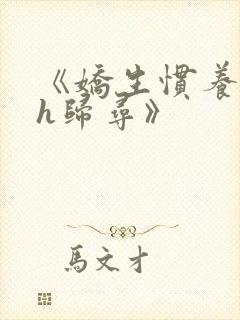 《嬌生慣養
h歸尋》
馬文才